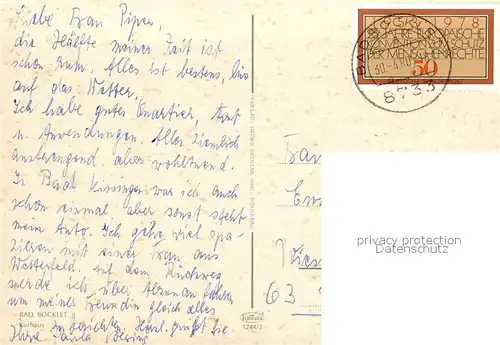 Liebe Frau Pipes,
die Hälfte meiner Zeit ist
schon rum. Alles ist bestens, bis
auf das Wetter.
Ich habe gutes Quartier, Arzt
u. Anwendungen. Alles ziemlich
anstrengend aber wohltuend.
In Bad Kissingen war ich auch
schon einmal aber sonst steht
mein Auto. Ich gehe viel spa-
zieren mit einer Frau aus
Auf dem Rückweg
werde ich über Alzenau fahren
um meiner Freundin gleich alles
zu berichten. Herzl. grüßt Sie
Ihre
BAD BOCKLET
Kurhaus
1244/2
1978
25 JAHRE EUROPÄISCHE
KONVENTION ZUM SCHUTZ
DER MENSCHENRECHTE
50
BAD BOCKLET
8733
Frau
63
privacy protection
Datenschutz